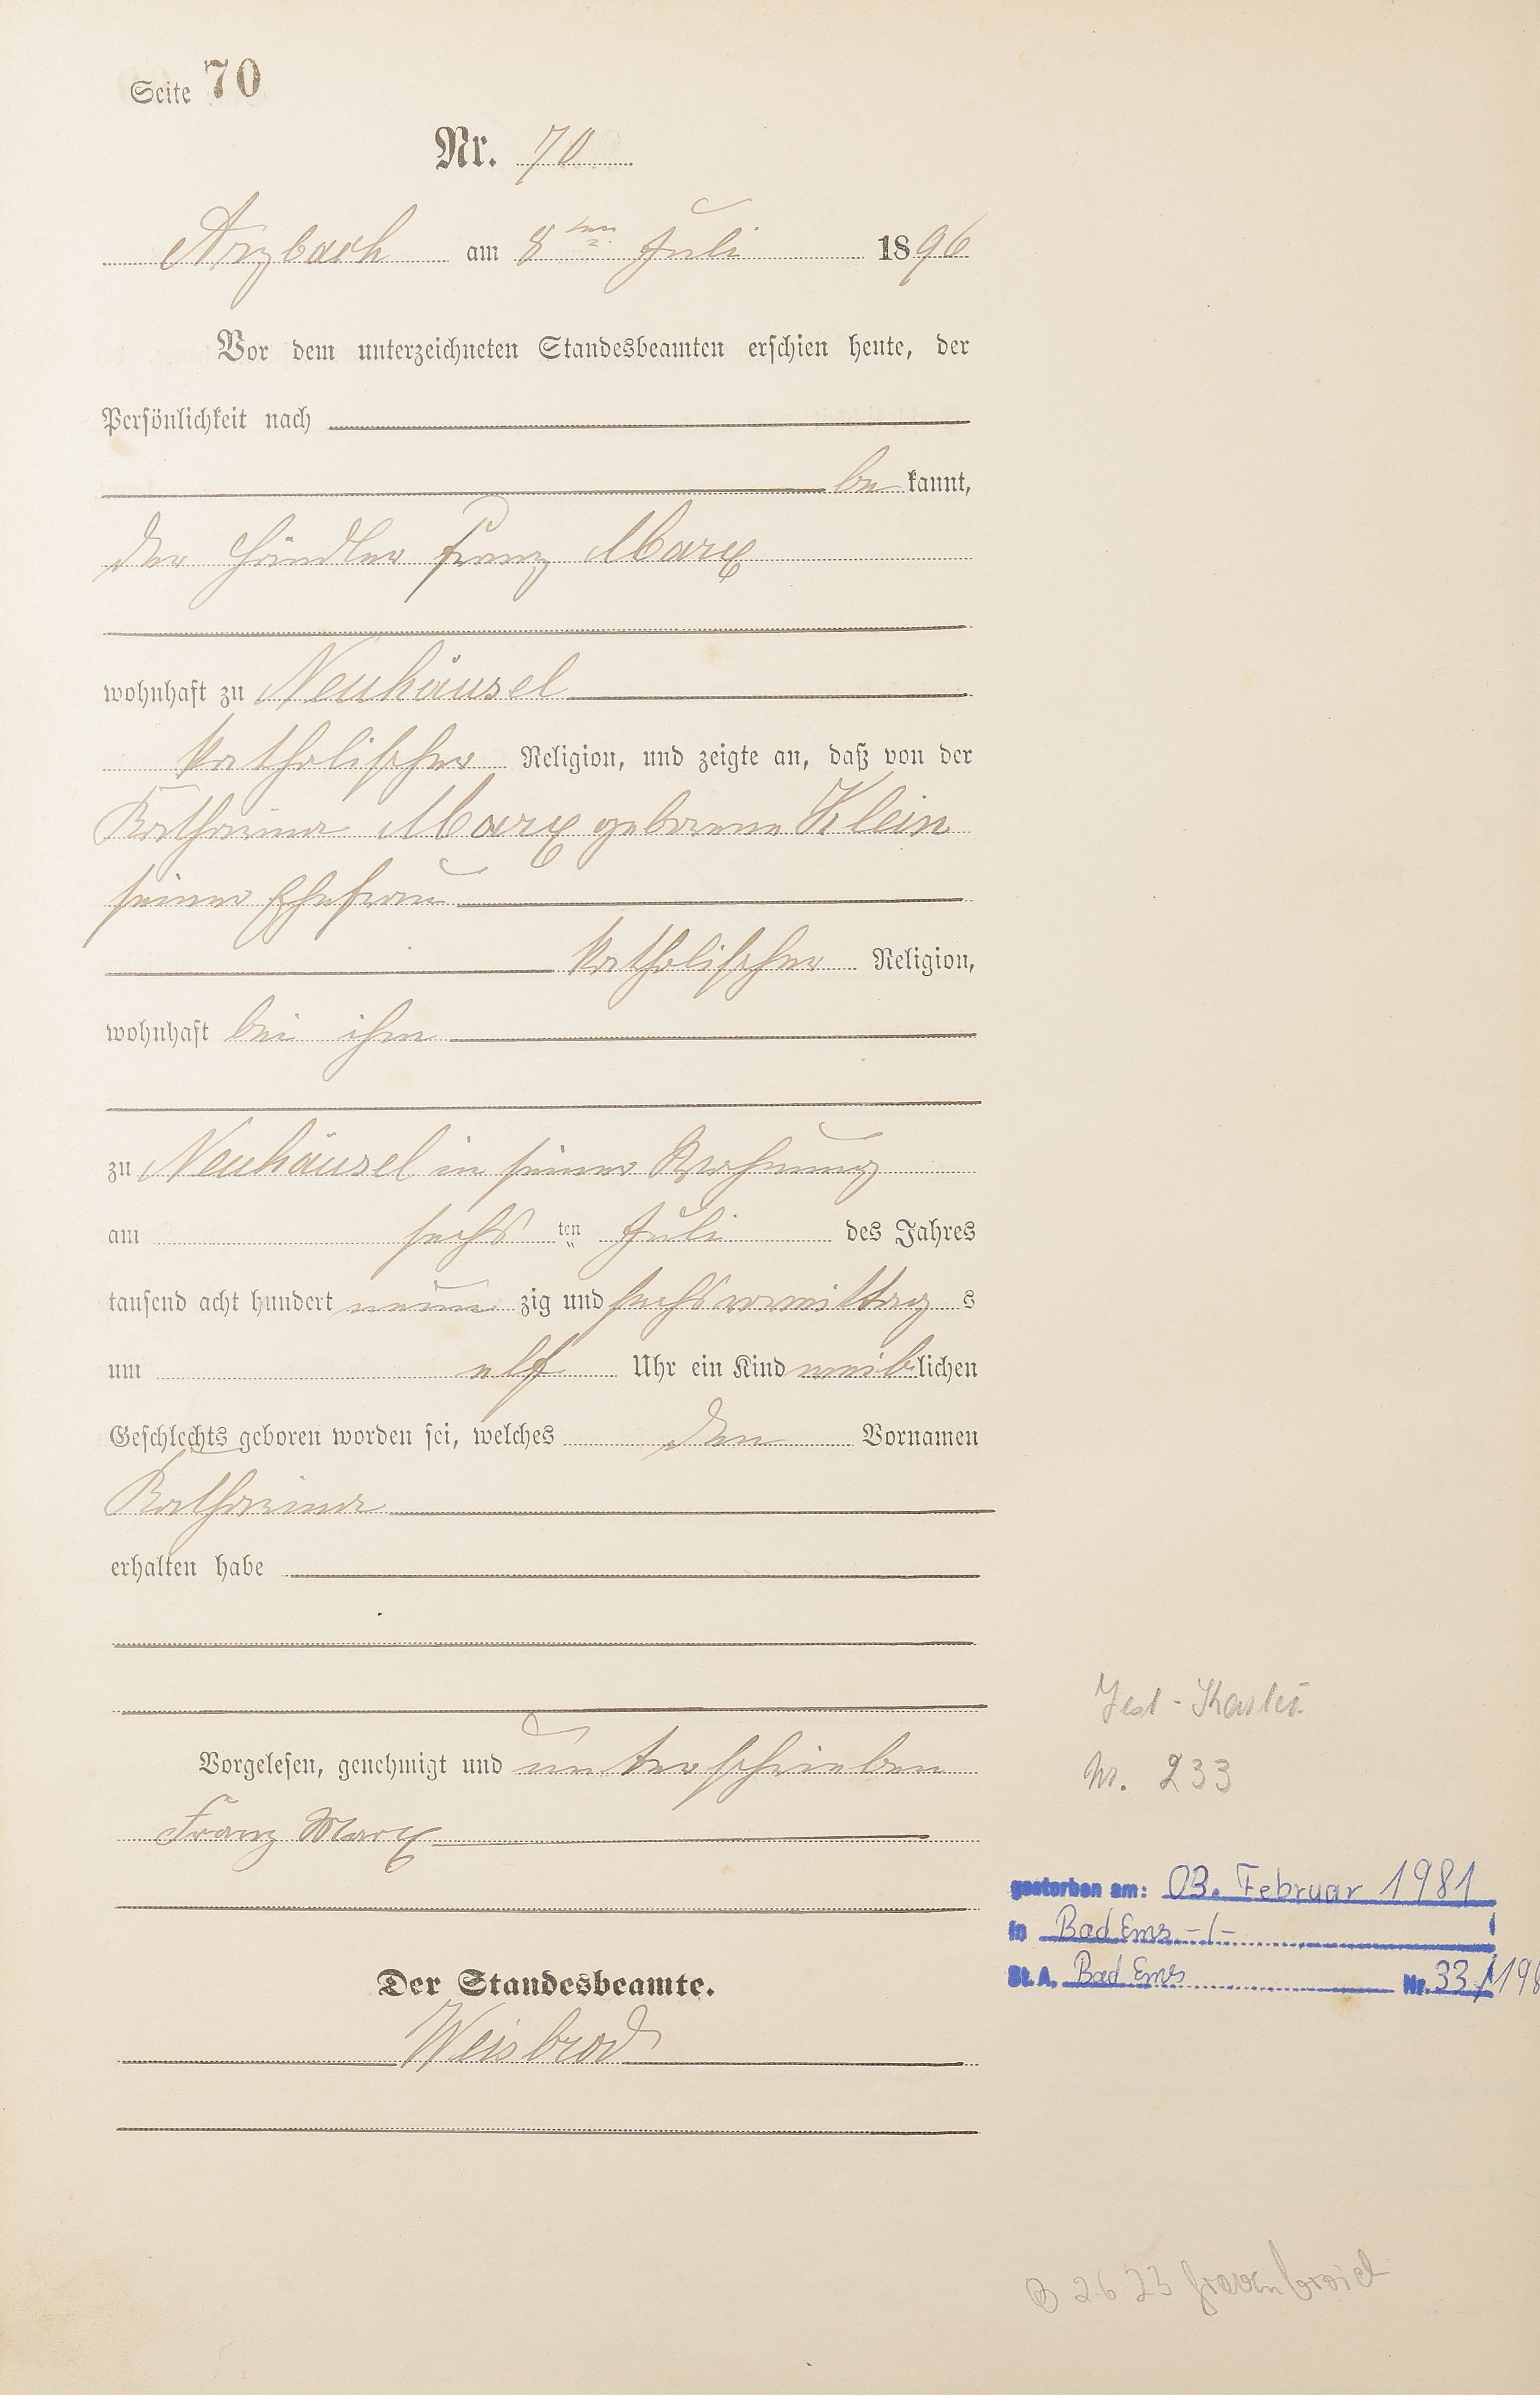 Seite 70
Nr. 70
Arzbach am 8ten Juli 1896
Vor dem unterzeichneten Standesbeamten erschien heute, der
Persönlichkeit nach
bekannt,
der Händler Franz Marx
wohnhaft zu Neuhäusel
katholischer Religion, und zeigte an, daß von der
Katharina Marx geborene Klein
seiner Ehefrau
katholischer Religion,
wohnhaft bei ihm
zu Neuhäusel in seiner Wohnung
am sechsten Juli des Jahres
tausend acht hundert neunzig und sechs vormittags
um elf Uhr ein Kind weiblichen
Geschlechts geboren worden sei, welches den Vornamen
Katharina
erhalten habe
Vorgelesen, genehmigt und unterschrieben
Franz Marx
Der Standesbeamte.
Weisbrod
Test-Kartei
Nr. 233
gestorben am: 03. Februar 1981
in Bad Ems -/-
St. A. Bad Ems Nr. 33/198
2623 Grevenbroich